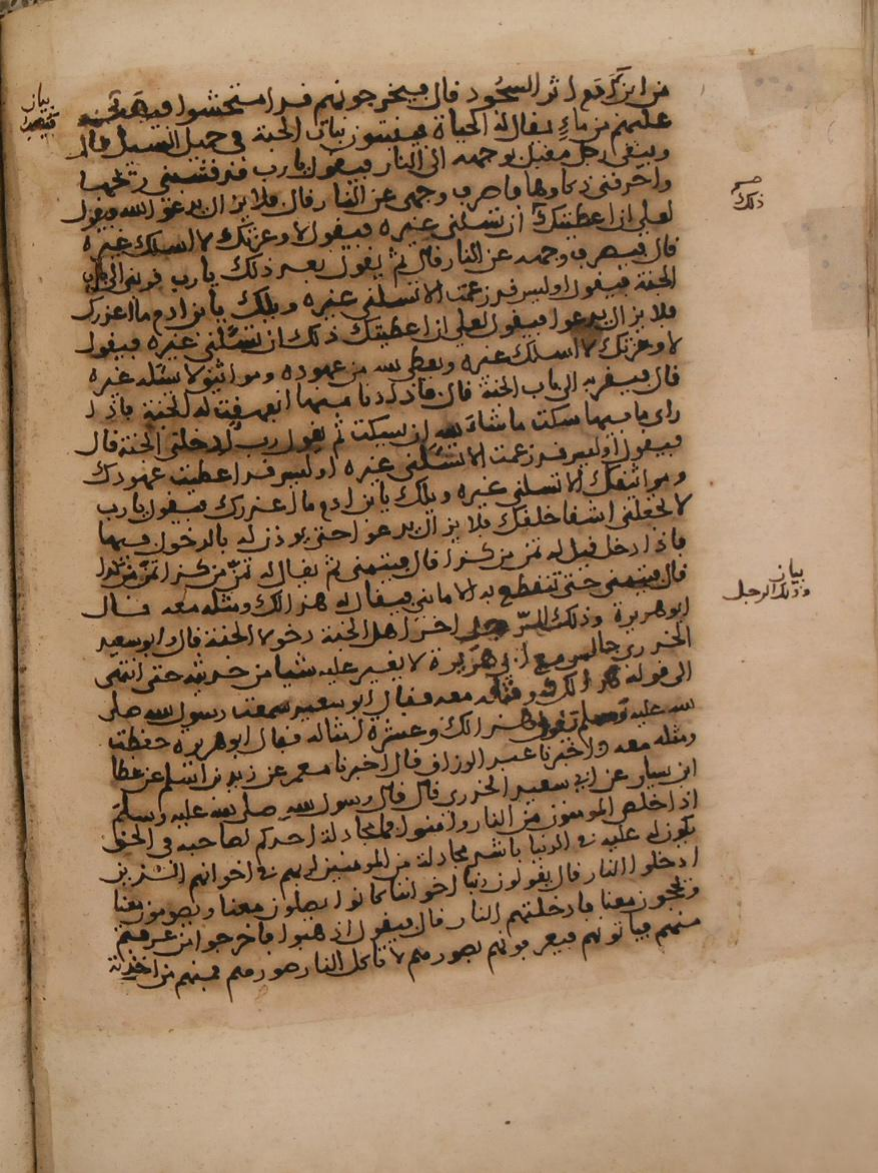 من ابن آدم اثر السجود قال فيخرجونهم قد امتحشوا فيصب
عليهم من ماء يقال له الحياة فينبتون نبات الحبة في حميل السيل قال
ويبقى رجل مقبل بوجهه الى النار فيقول يا رب قد قشبني ريحها
واحرقني ذكاوها فاصرف وجهي عن النار قال فلا يزال يدعو الله فيقول
لعلي ان اعطيتك ان تسلني غيره فيقول لا وعزتك لا اسلك غيره
قال فيصرف وجهه عن النار قال ثم يقول بعد ذلك يا رب قربني الى باب
الجنة فيقول اوليس قد زعمت الا تسلني غيره ويلك يا بن ادم ما اغدرك
فلا يزال يدعوا فيقول لعلي ان اعطيتك ذلك ان تسئلني غيره فيقول
لا وعزتك لا اسلك غيره ويعطي الله من عهوده ومواثيق لا سئله غيره
قال فيقربه الى باب الجنة قال فاذا دنا منها انفهقت له الجنة فاذا
راى ما فيها سكت ما شاء الله ان يسكت ثم يقول رب ادخلني الجنة قال
فيقول اوليس قد زعمت الا تسئلني غيره اوليس قد اعطيت عهودك
ومواثيقك الا تسلني غيره ويلك يا بن ادم ما اغدرك فيقول يا رب
لا تجعلني اشقا خلقك فلا يزال يدعوا حتى يوذن له بالدخول فيها
فاذا دخل قيل له تمن من كذا قال فيتمنى ثم يقال له تمن من كذا تمن من كذا
قال فيتمنى حتى تنقطع به الاماني فيقال له هذا لك ومثله معه قال
ابو هريرة وذلك الرجل اخر اهل الجنة دخولا الجنة قال وابو سعيد
الخدري جالس مع ابي هريرة لا يغير عليه شيا من حديثه حتى انتهى
الى قوله هذا لك ومثله معه فقال ابو سعيد سمعت رسول الله صلى
الله عليه وسلم يقول هذا لك وعشرة امثاله فقال ابو هريرة حفظت
ومثله معه واخبرنا عبد الرزاق قال اخبرنا معمر عن زيد بن اسلم عن عطا
ابن يسار عن ابي سعيد الخدري قال قال رسول الله صلى الله عليه وسلم
اذا خلص المومنون من النار وامنوا فما مجادلة احدكم لصاحبه في الحق
يكون له عليه في الدنيا باشد مجادلة من المومنين لربهم في اخوانهم الذين
ادخلوا النار قال يقولون ربنا اخواننا كانوا يصلون معنا ويصومون معنا
ويحجون معنا فادخلتهم النار قال فيقول اذهبوا فاخرجوا من عرفتم
منهم فياتونهم فيعرفونهم بصورهم لا تاكل النار صورهم فمنهم من اخذته
بيان
فيصب
ذلك
بيان
وذلك الرجل